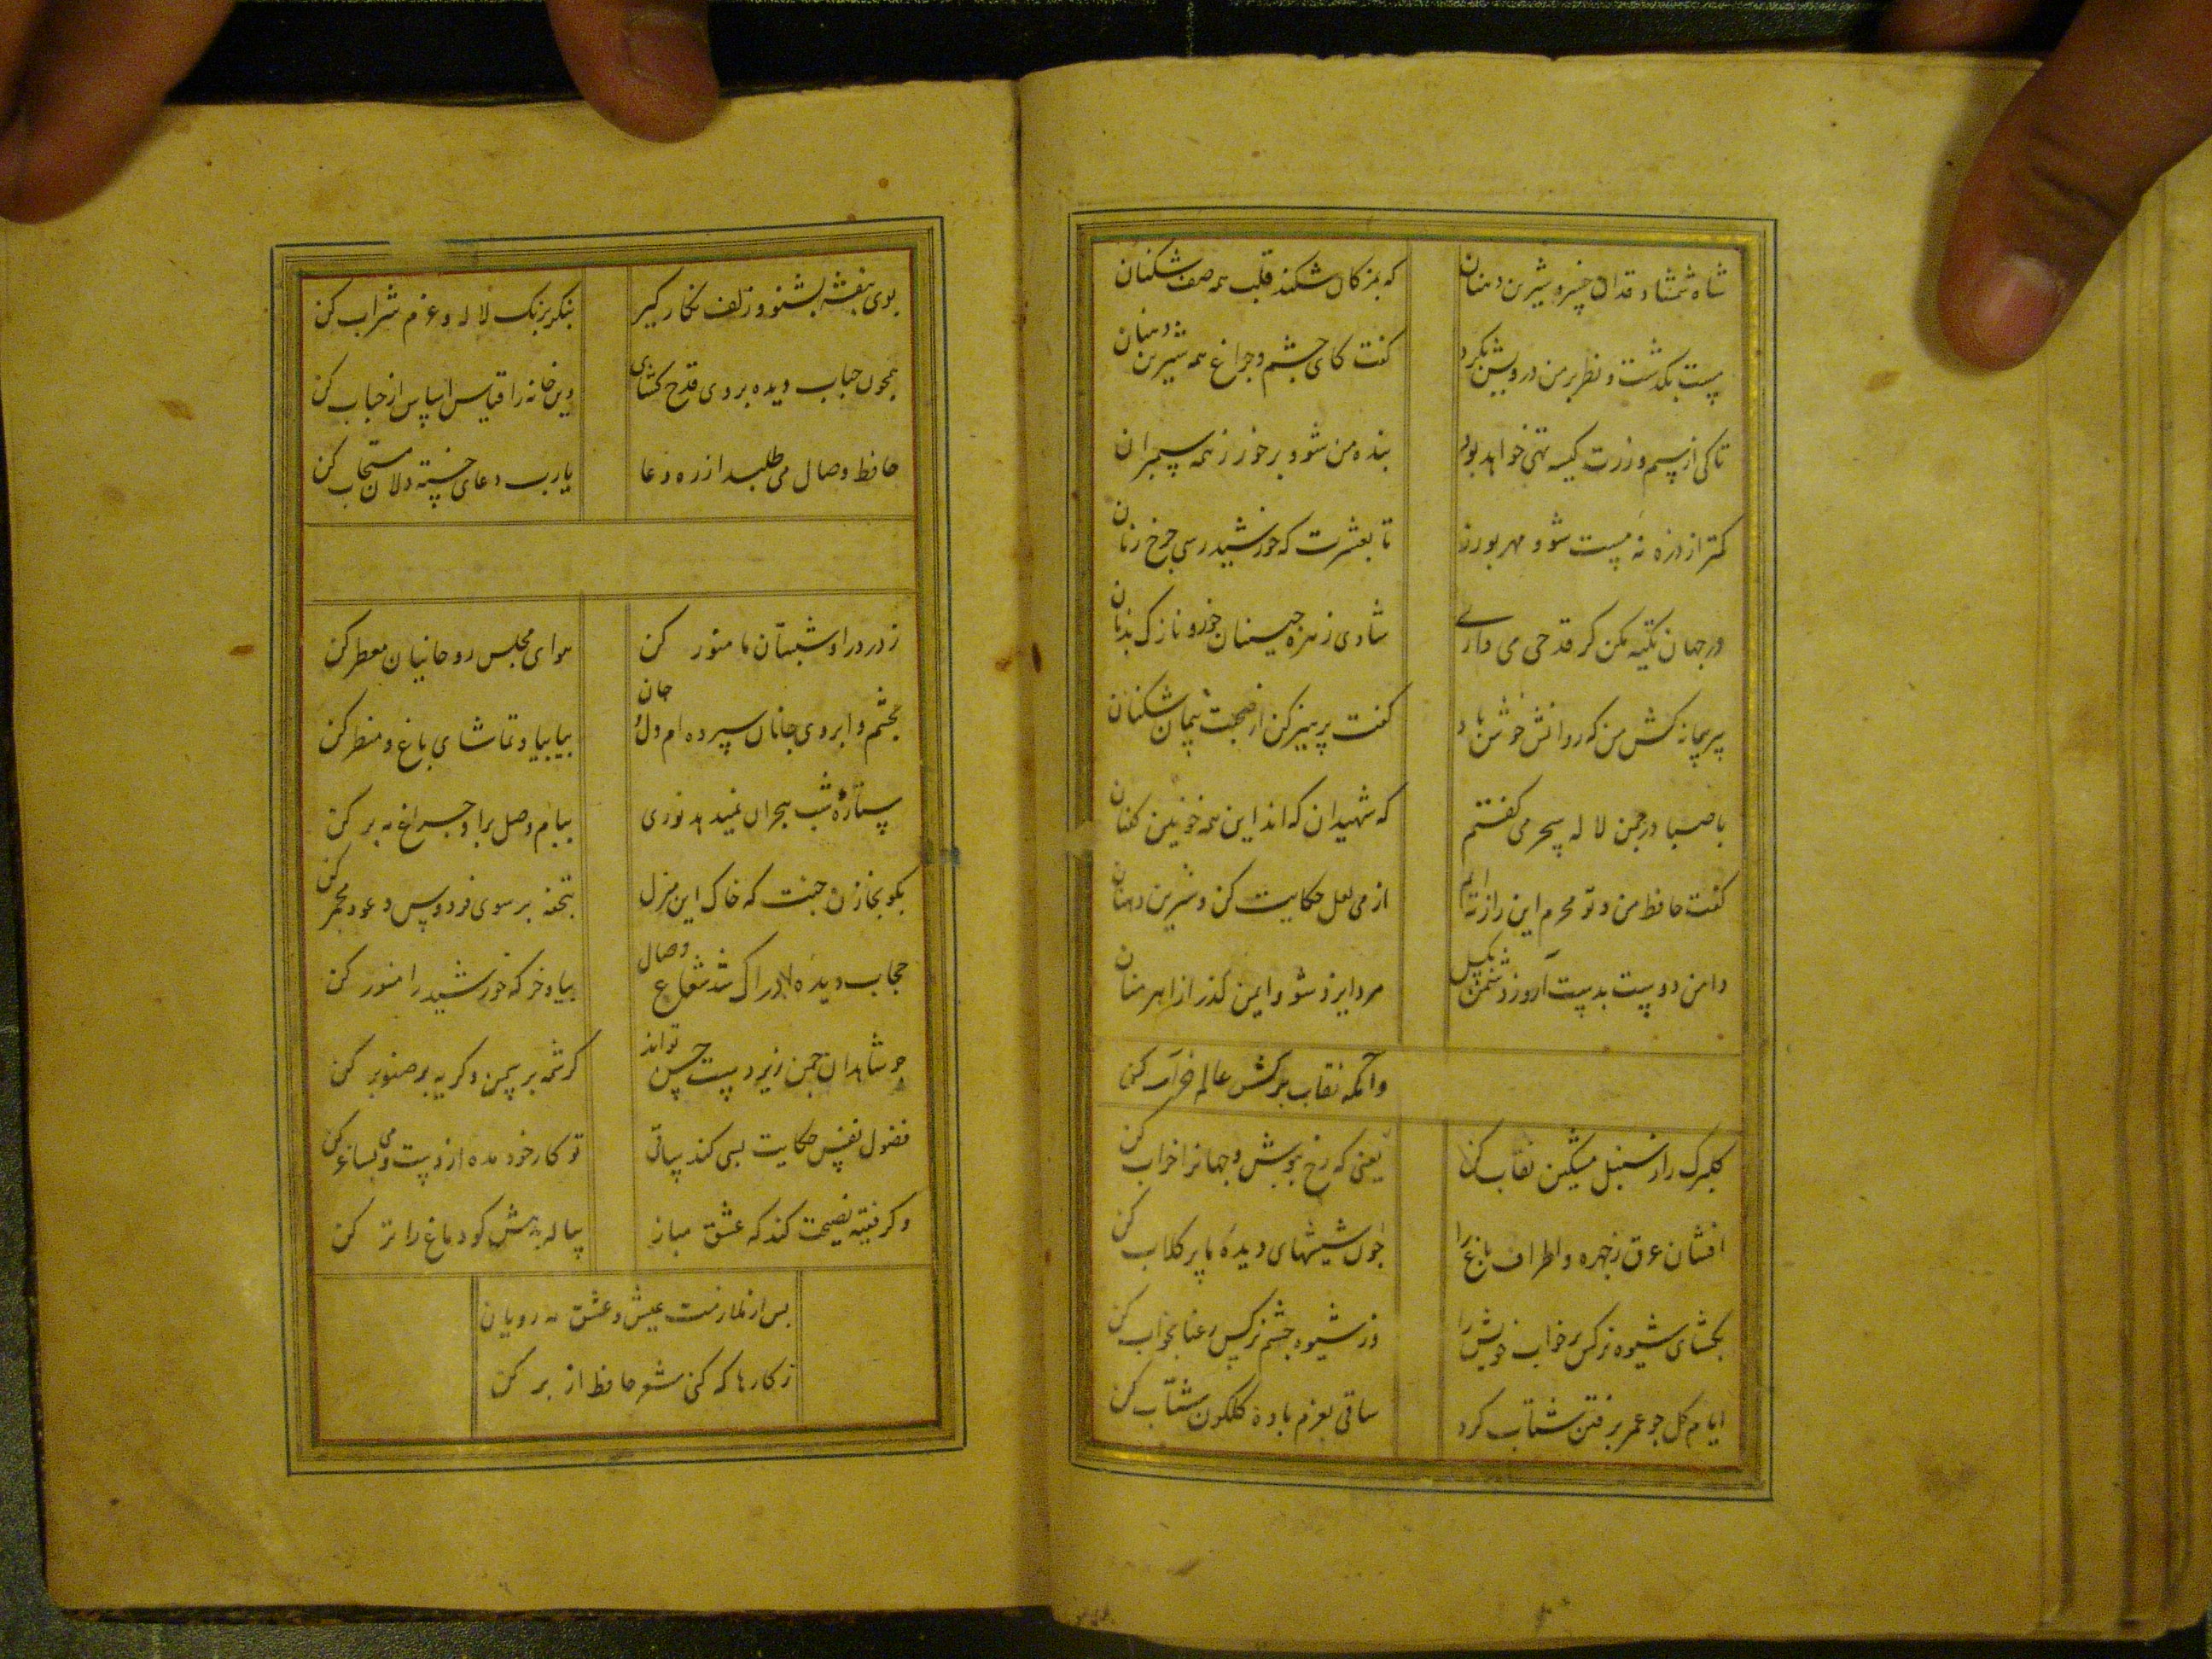 شاه شمشاد قدان خسرو شیرین دهنان که بمژکان شکند قلب همه صف شکنان
مست بکذشت و نظر بر من درویش بکرد کفت کای چشم و چراغ همه شیرین دهنان
تا کی از سیم و زرت کیسه تهی خواهد بود بنده من شو و برخور ز همه سیمبران
کمتر از ذره نه پست شو و مهر بورز تا بعشرت که خورشید رسی چرخ زنان
در جهان تکیه مکن کر قدحی می داری شادی زهره جبینان خور و نازک بدنان
پیر پیمانه کش من که روانش خوش باد کفت پرهیز کن از صحبت پیمان شکنان
با صبا در چمن لاله سحر می کفتم که شهیدان که اند این همه خونین کفنان
کفت حافظ من و تو محرم این راز نه ایم از می لعل حکایت کن و شیرین دهنان
دامن دوست بدست آر و ز دشمن بکسل مرد ایزد شو و ایمن کذر از اهرمنان
وآنکه نقاب برکش عالم خراب کن
کلبرک را ز سنبل مشکین نقاب کن یعنی که رخ بپوش و جهانرا خراب کن
افشان عرق ز چهره و اطراف باغ را چون شیشهای دیده ما پر کلاب کن
بکشای شیوه نرکس پر خواب خویش را وز شیوه چشم نرکس رعنا بخواب کن
ایام کل چو عمر برفتن شتاب کرد ساقی بعزم باده کلکون شتاب کن
بوی بنفشه بشنو و زلف نکار کیر بنکر برنک لاله و عزم شراب کن
همچون حباب دیده بروی قدح کشای وین خانه را قیاس اساس از حباب کن
حافظ وصال می طلبد از ره دعا یارب دعای خسته دلان مستجاب کن
ز در درا و شبستان ما منور کن هوای مجلس روحانیان معطر کن
بچشم و ابروی جانان سپرده ام دل و جان بیا بیا و تماشای باغ و منظر کن
ستاره شب هجران نمیدهد نوری ببام وصل برا و چراغ مه بر کن
بکو بخازن جنت که خاک این منزل بتحفه بر سوی فردوس و عود مجمر کن
حجاب دیده ادراک شد شعاع وصال بیا و خرکه خورشید را منور کن
چو شاهدان چمن زیر دست حسن تواند کرشمه بر سمن و کریه بر صنوبر کن
فضول نفس حکایت بسی کند ساقی تو کار خود مده از دست و می بساغر کن
وکر فقیه نصیحت کند که عشق مباز پیاله بدهش کو دماغ را تر کن
پس از ملازمت عیش و عشق مه رویان
ز کارها که کنی شعر حافظ از بر کن